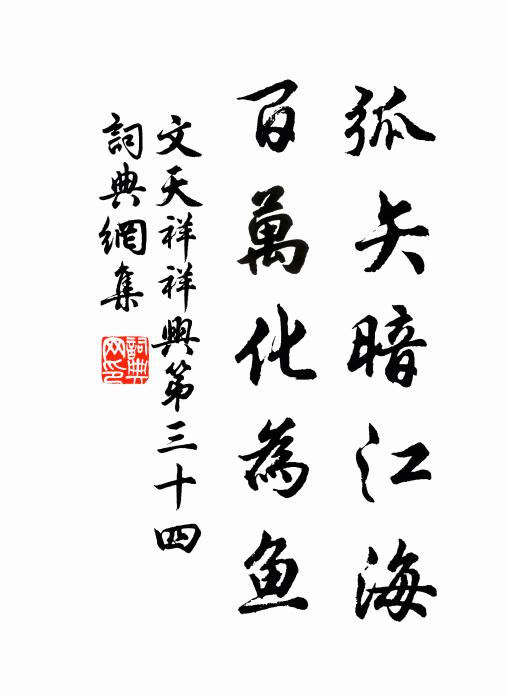 弧矢暗江海
百萬化為魚
文天祥祥興第三十四
詞典網集
詞典網印